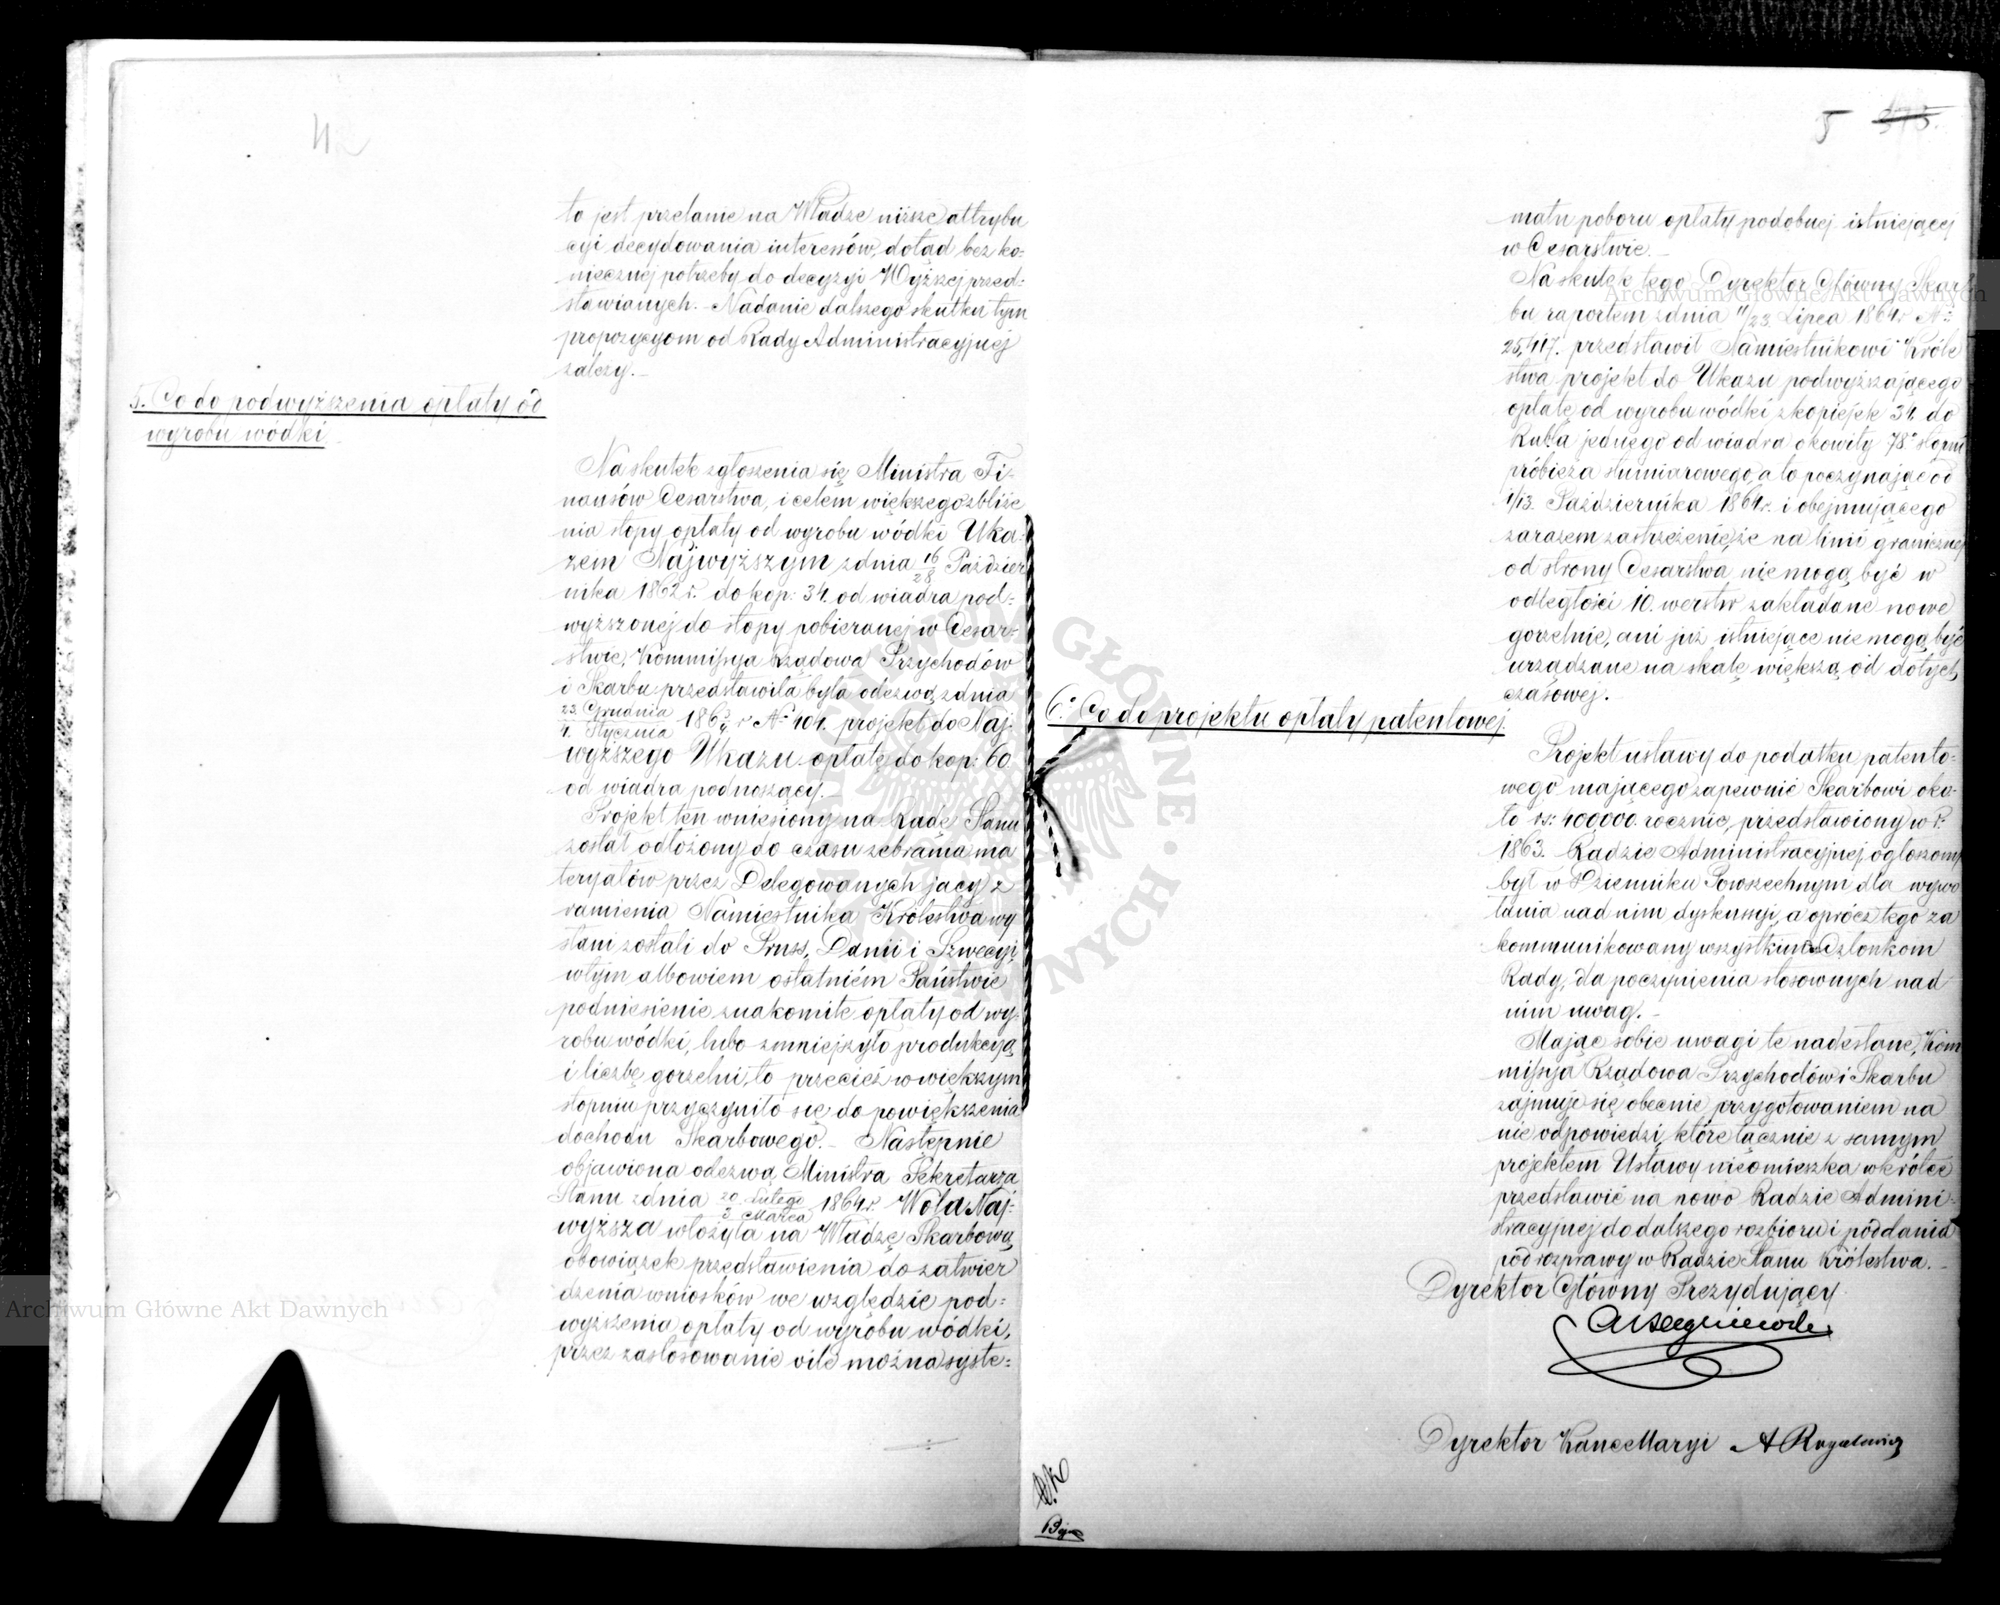 to jest przelanie na Władze niższe attrybu
cyi decydowania interessów, dotąd bez ko=
niecznej potrzeby do decyzyi Wyższej przed=
stawianych. – Nadanie dalszego skutku tym
propozycyom od Rady Administracyjnej
zależy. –
5. Co do podwyższenia opłaty od
wyrobu wódki
Na skutek zgłoszenia się Ministra Fi-
nansów Cesarstwa, i celem większego zbliże
nia stopy opłaty od wyrobu wódki Uka-
zem Najwyższym z dnia 16/28 Paździer
nika 1862 r. do kop: 34. od wiadra pod=
wyższonej do stopy pobieranej w Cesar-
stwie, Kommissya Rządowa Przychodów
i Skarbu przedstawiła była odezwą z dnia
23 Grudnia / 4. Stycznia 186 3/4 r № 104. projekt do Naj-
wyższego Ukazu opłatę do kop: 60
od wiadra podnoszący. –
Projekt ten wniesiony na Radę Stanu
został odłożony do czasu zebrania ma
teryałów przez Delegowanych jacy z
ramienia Namiestnika Królestwa wy
słani zostali do Pruss, Danii i Szwecyi,
w tym albowiem ostatniém Państwie
podniesienie znakomite opłaty od wy-
robu wódki, lubo zmniejszyło produkcyą
i liczbę gorzelni, to przecież w większym
stopniu przyczyniło się do powiększenia
dochodu Skarbowego. – Następnie
objawiona odezwą Ministra Sekretarza
Stanu z dnia 20 Lutego / 3 Marca 1864 r. Wola Naj-
wyższa włożyła na Władzę Skarbową
obowiązek przedstawienia do zatwier
dzenia wniosków we względzie pod=
wyższenia opłaty od wyrobu wódki,
przez zastosowanie o ile można syste=
5
matu poboru opłaty podobnej istniejącej
w Cesarstwie. –
Na skutek tego Dyrektor Główny Skar
bu raportem z dnia 11/23. Lipca 1864 r №
25,417. przedstawił Namiestnikowi Króle
stwa projekt do Ukazu podwyższającego
opłatę od wyrobu wódki z kopiejek 34. do
Rubla jednego od wiadra okowity 78° stopni
próbierza stumiarowego, a to poczynając od
1/13. Października 1864 r. i obejmującego
zarazem zastrzeżenie, że na linii granicznej
od strony Cesarstwa, nie mogą być w
odległości 10. werstw zakładane nowe
gorzelnie, ani już istniejące nie mogą być
urządzane na skalę większą od dotych
czasowej. –
6.° Co do projektu opłaty patentowej.
Projekt ustawy do podatku patento-
wego mającego zapewnić Skarbowi oko-
ło rs: 400,000. rocznie, przedstawiony w r.
1863. Radzie Administracyjnej, ogłoszony
był w Dzienniku Powszechnym dla wywo
łania nad nim dyskussyi, a oprócz tego za
kommunikowany wszystkim Członkom
Rady, dla poczynienia stosownych nad
nim uwag. –
Mając sobie uwagi te nadesłane, Kom
missya Rządowa Przychodów i Skarbu
zajmuje się obecnie przygotowaniem na
nie odpowiedzi, które łącznie z samym
projektem Ustawy nieomieszka wkrótce
przedstawić na nowo Radzie Admini-
stracyjnej do dalszego rozbioru i poddania
pod rozprawy w Radzie Stanu Królestwa. –
Dyrektor Główny Prezydujący
Dyrektor Kancellaryi A Rogalewicz
Archiwum Główne Akt Dawnych
Archiwum Główne Akt Dawnych